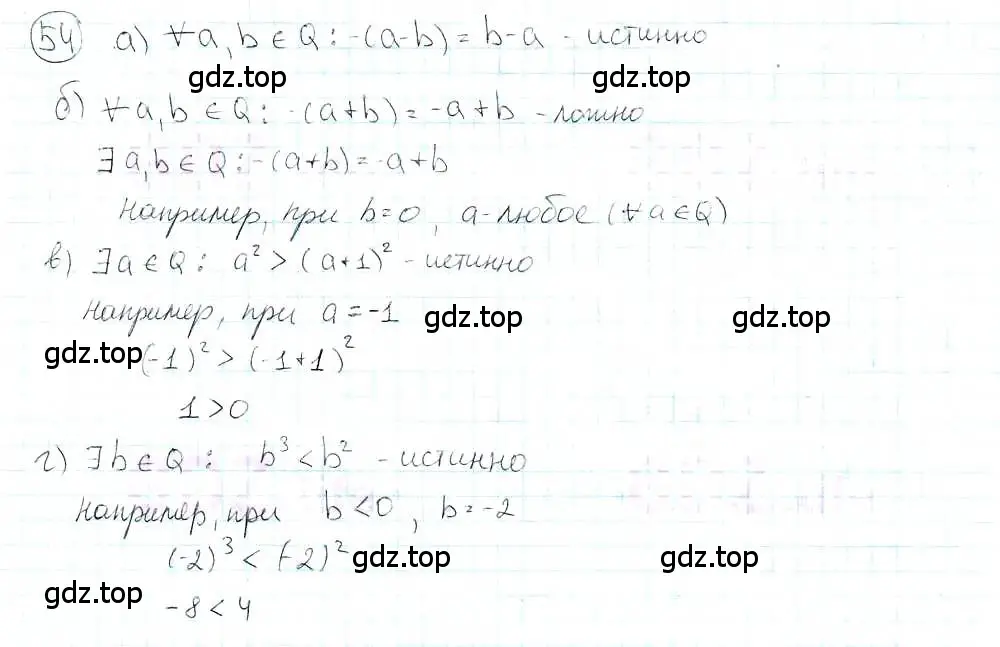 54 а) ∀a,b ∈ Q : -(a-b) = b-a - истинно
gdz.top gdz.top
б) ∀a,b ∈ Q : -(a+b) = -a+b - ложно
∃a,b ∈ Q : -(a+b) = -a+b
Например, при b=0, a-любое (∀a∈Q)
в) ∃a ∈ Q : a² > (a+1)² - истинно
Например, при a = -1 gdz.top gdz.top
gdz.top (-1)² > (-1+1)²
1 > 0
г) ∃b ∈ Q : b³ < b² - истинно
Например, при b < 0, b = -2
(-2)³ < (-2)² gdz.top gdz.top
gdz.top -8 < 4